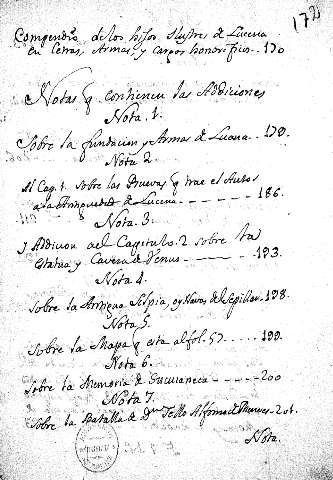 172
Compendio de los hijos Ilustres de Lucena
en Letras, Armas, y cargos honorificos. 170
Notas q contienen las Addiciones
Nota. 1.
Sobre la fundacion y Armas de Lucena. 178.
Nota 2.
Al Cap. 1. sobre las Pruevas q trae el Autor
a la Antiguedad de Lucena - - - - - 186.
Nota. 3.
y Addicion al Capitulo. 2 sobre la
Estatua y Caveza de Venus - - - - - 193.
Nota 4.
Sobre la Antigua 198.
Nota 5.
Sobre la Mapa q esta al fol. 57. . . . . . 199.
Nota 6.
Sobre la Memoria de - - - - - 200
Nota 7.
Sobre la Batalla de Dn Tello 201.
Nota.